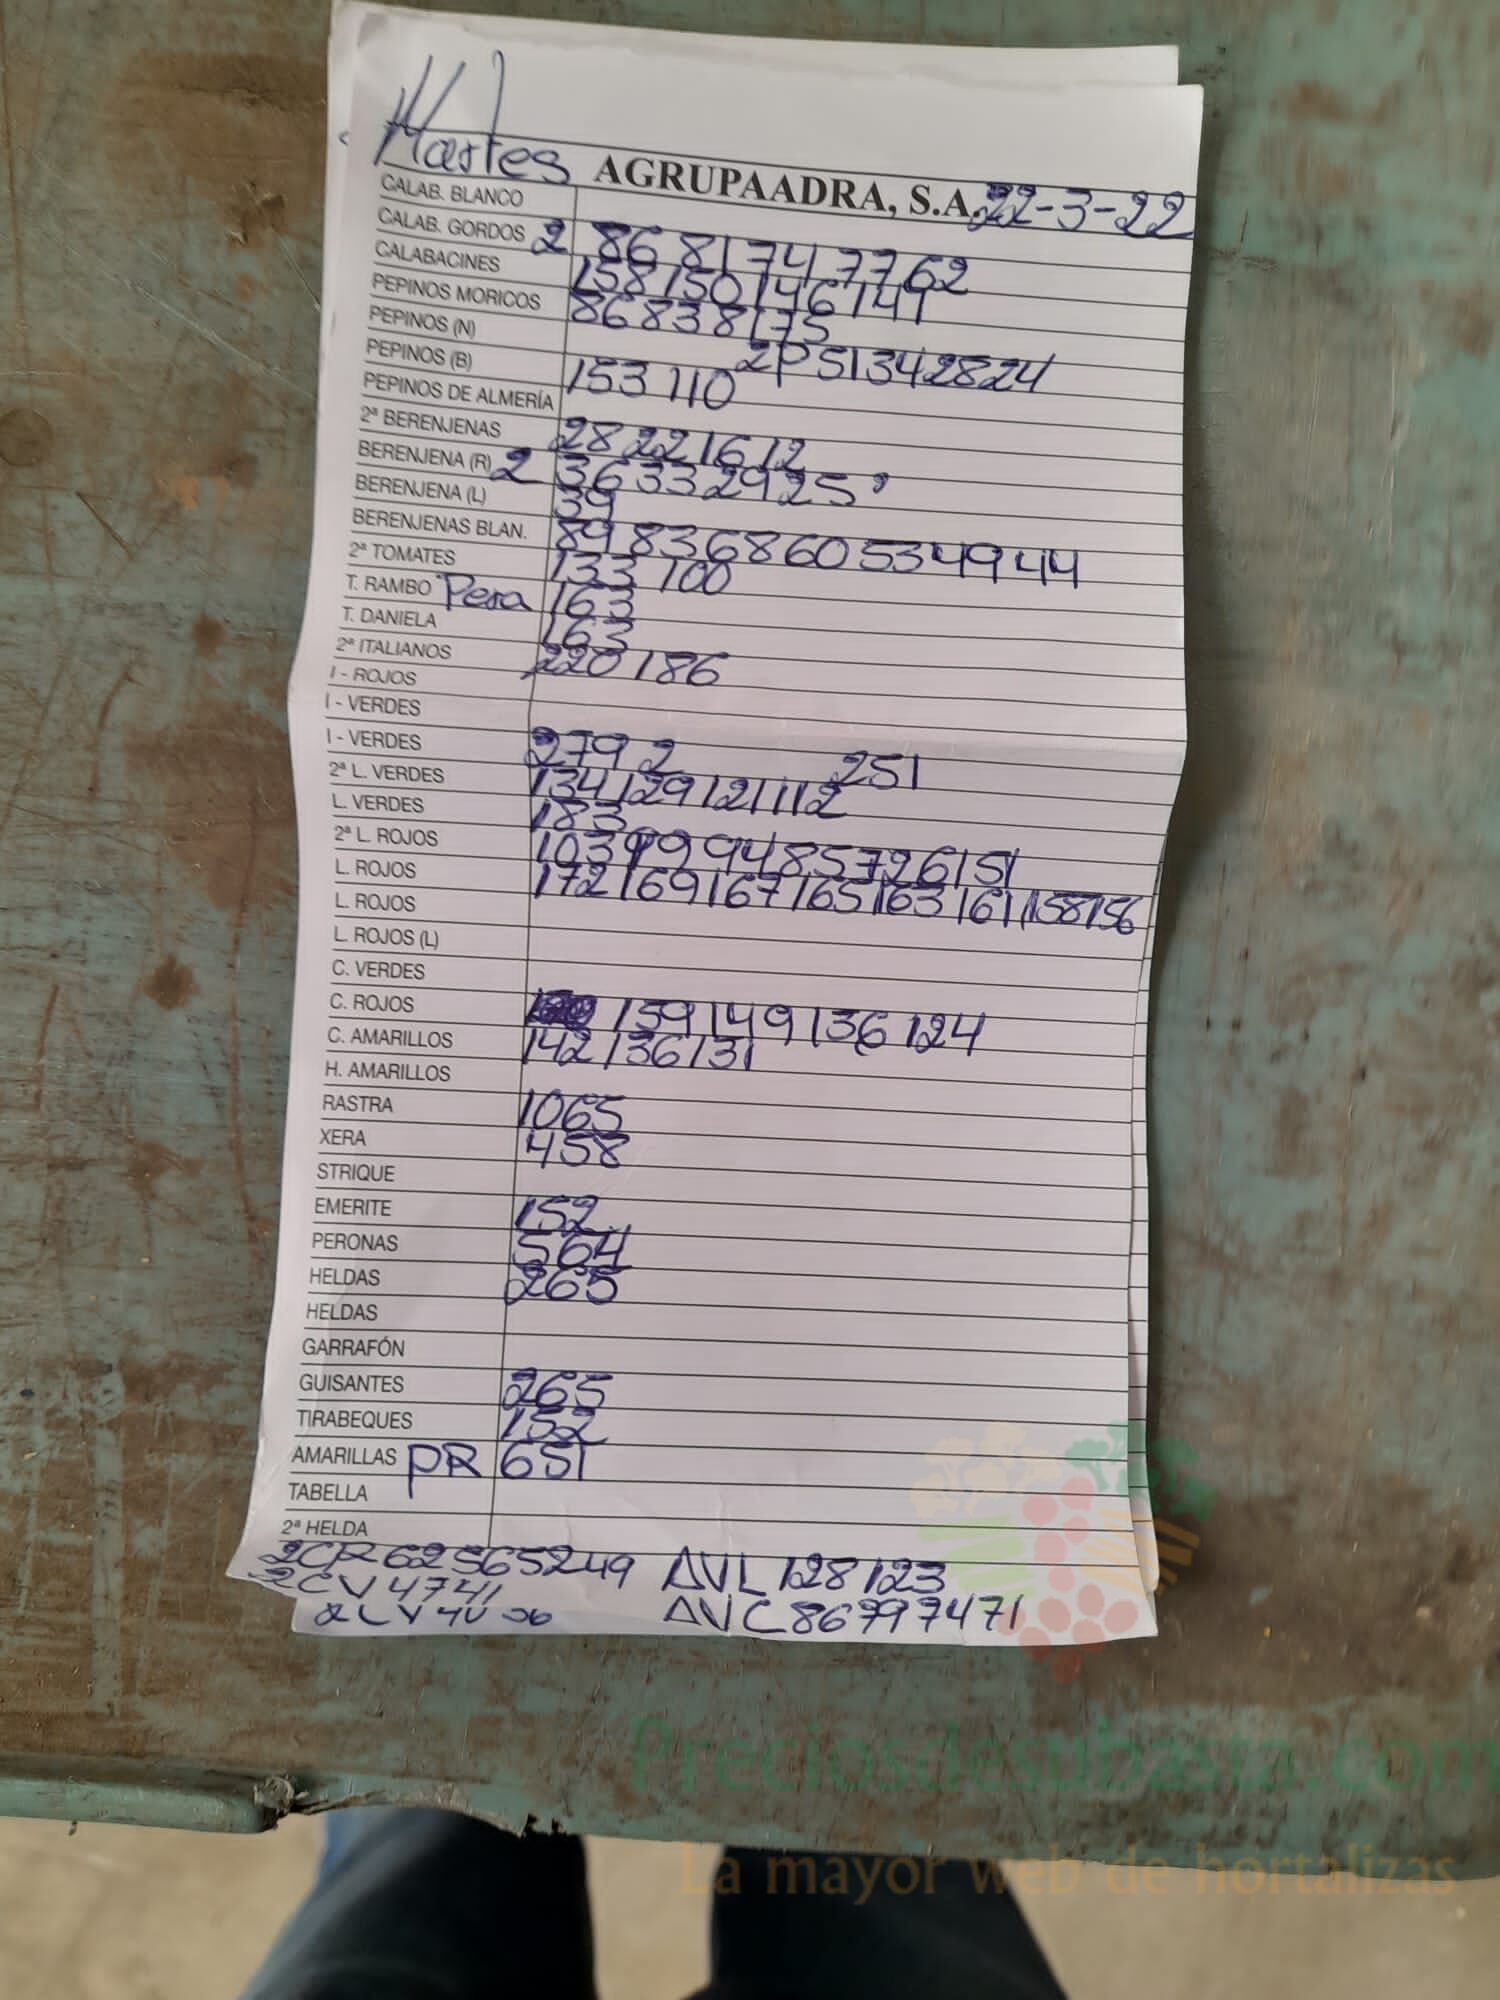 Martes AGRUPAADRA, S.A. 22-3-22
CALAB. BLANCO
CALAB. GORDOS 2 86 81 74 77 62
CALABACINES 158 150 146 141
PEPINOS MORICOS 86 83 81 75
PEPINOS (N) 2P 51 34 28 24
PEPINOS (B) 153 110
PEPINOS DE ALMERÍA
2ª BERENJENAS 28 22 16 12
BERENJENA (R) 2 36 33 29 25
BERENJENA (L) 39
BERENJENAS BLAN. 89 83 68 60 53 49 44
2ª TOMATES 133 100
T. RAMBO Pera 163
T. DANIELA 163
2ª ITALIANOS 220 186
I - ROJOS
I - VERDES
I - VERDES 279 2 251
2ª L. VERDES 134 129 121 112
L. VERDES 183
2ª L. ROJOS 103 99 94 85 72 61 51
L. ROJOS 172 169 167 165 163 161 158 156
L. ROJOS
L. ROJOS (L)
C. VERDES
C. ROJOS 159 149 136 124
C. AMARILLOS 142 136 131
H. AMARILLOS
RASTRA 1065
XERA 458
STRIQUE
EMERITE 152
PERONAS 564
HELDAS 265
HELDAS
GARRAFÓN
GUISANTES 265
TIRABEQUES 152
AMARILLAS PR 651
TABELLA
2ª HELDA
2CR 62 56 52 49 AVL 128 123
2CV 47 41 AVC 86 79 74 71
2LV 40
Preciosdesubasta.com
La mayor web de hortalizas